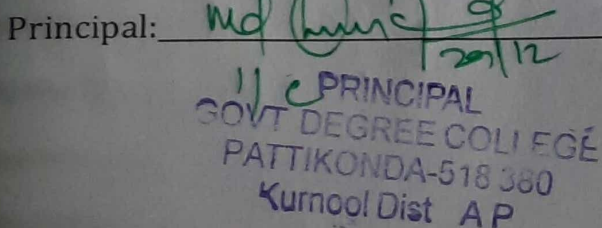 Principal:
20/12
PRINCIPAL
GOVT DEGREE COLLEGE
PATTIKONDA-518 380
Kurnool Dist A P